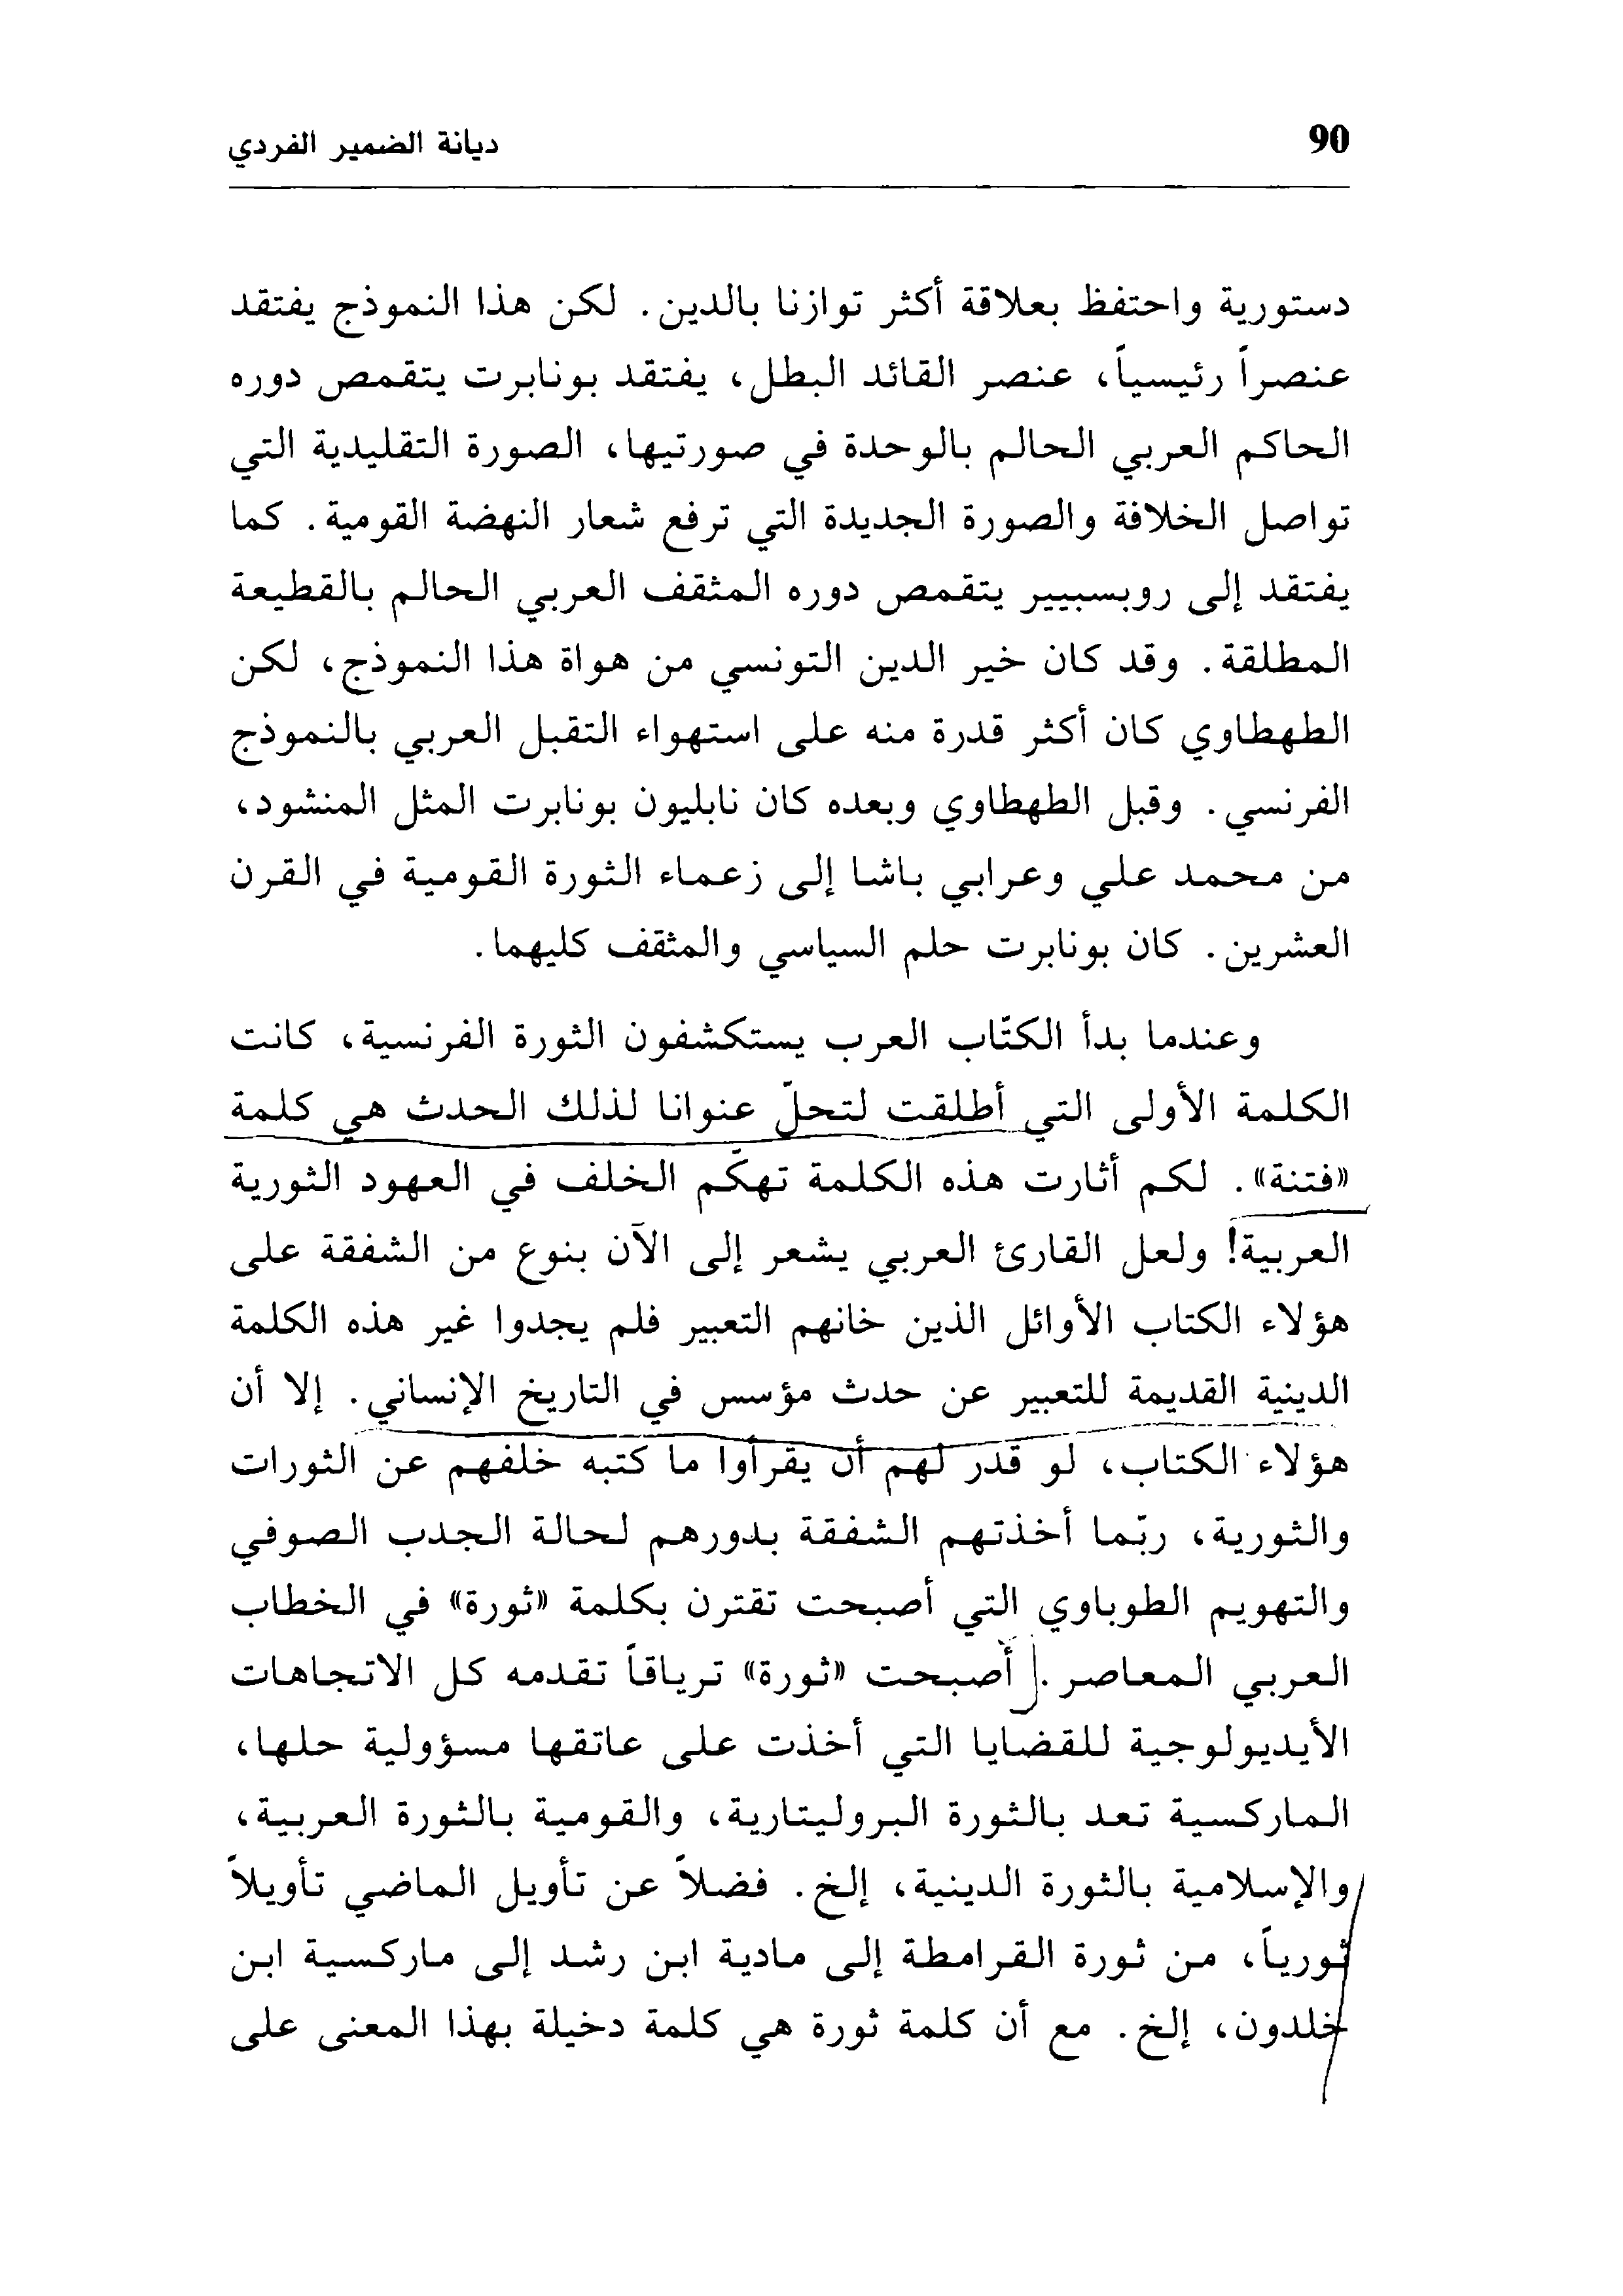 90
ديانة الضمير الفردي
دستورية واحتفظ بعلاقة أكثر توازنا بالدين. لكن هذا النموذج يفتقد
عنصراً رئيسياً، عنصر القائد البطل، يفتقد بونابرت يتقمص دوره
الحاكم العربي الحالم بالوحدة في صورتيها، الصورة التقليدية التي
تواصل الخلافة والصورة الجديدة التي ترفع شعار النهضة القومية. كما
يفتقد إلى روبسبيير يتقمص دوره المثقف العربي الحالم بالقطيعة
المطلقة. وقد كان خير الدين التونسي من هواة هذا النموذج، لكن
الطهطاوي كان أكثر قدرة منه على استهواء التقبل العربي بالنموذج
الفرنسي. وقبل الطهطاوي وبعده كان نابليون بونابرت المثل المنشود،
من محمد علي وعرابي باشا إلى زعماء الثورة القومية في القرن
العشرين. كان بونابرت حلم السياسي والمثقف كليهما.
وعندما بدأ الكتّاب العرب يستكشفون الثورة الفرنسية، كانت
الكلمة الأولى التي أطلقت لتحلّ عنوانا لذلك الحدث هي كلمة
«فتنة». لكم أثارت هذه الكلمة تهكّم الخلف في العهود الثورية
العربية! ولعل القارئ العربي يشعر إلى الآن بنوع من الشفقة على
هؤلاء الكتاب الأوائل الذين خانهم التعبير فلم يجدوا غير هذه الكلمة
الدينية القديمة للتعبير عن حدث مؤسس في التاريخ الإنساني. إلا أن
هؤلاء الكتاب، لو قدر لهم أن يقرأوا ما كتبه خلفهم عن الثورات
والثورية، ربّما أخذتهم الشفقة بدورهم لحالة الجدب الصوفي
والتهويم الطوباوي التي أصبحت تقترن بكلمة «ثورة» في الخطاب
العربي المعاصر. أصبحت «ثورة» ترياقاً تقدمه كل الاتجاهات
الأيديولوجية للقضايا التي أخذت على عاتقها مسؤولية حلها،
الماركسية تعد بالثورة البروليتارية، والقومية بالثورة العربية،
والإسلامية بالثورة الدينية، إلخ. فضلاً عن تأويل الماضي تأويلاً
ثورياً، من ثورة القرامطة إلى مادية ابن رشد إلى ماركسية ابن
خلدون، إلخ. مع أن كلمة ثورة هي كلمة دخيلة بهذا المعنى على